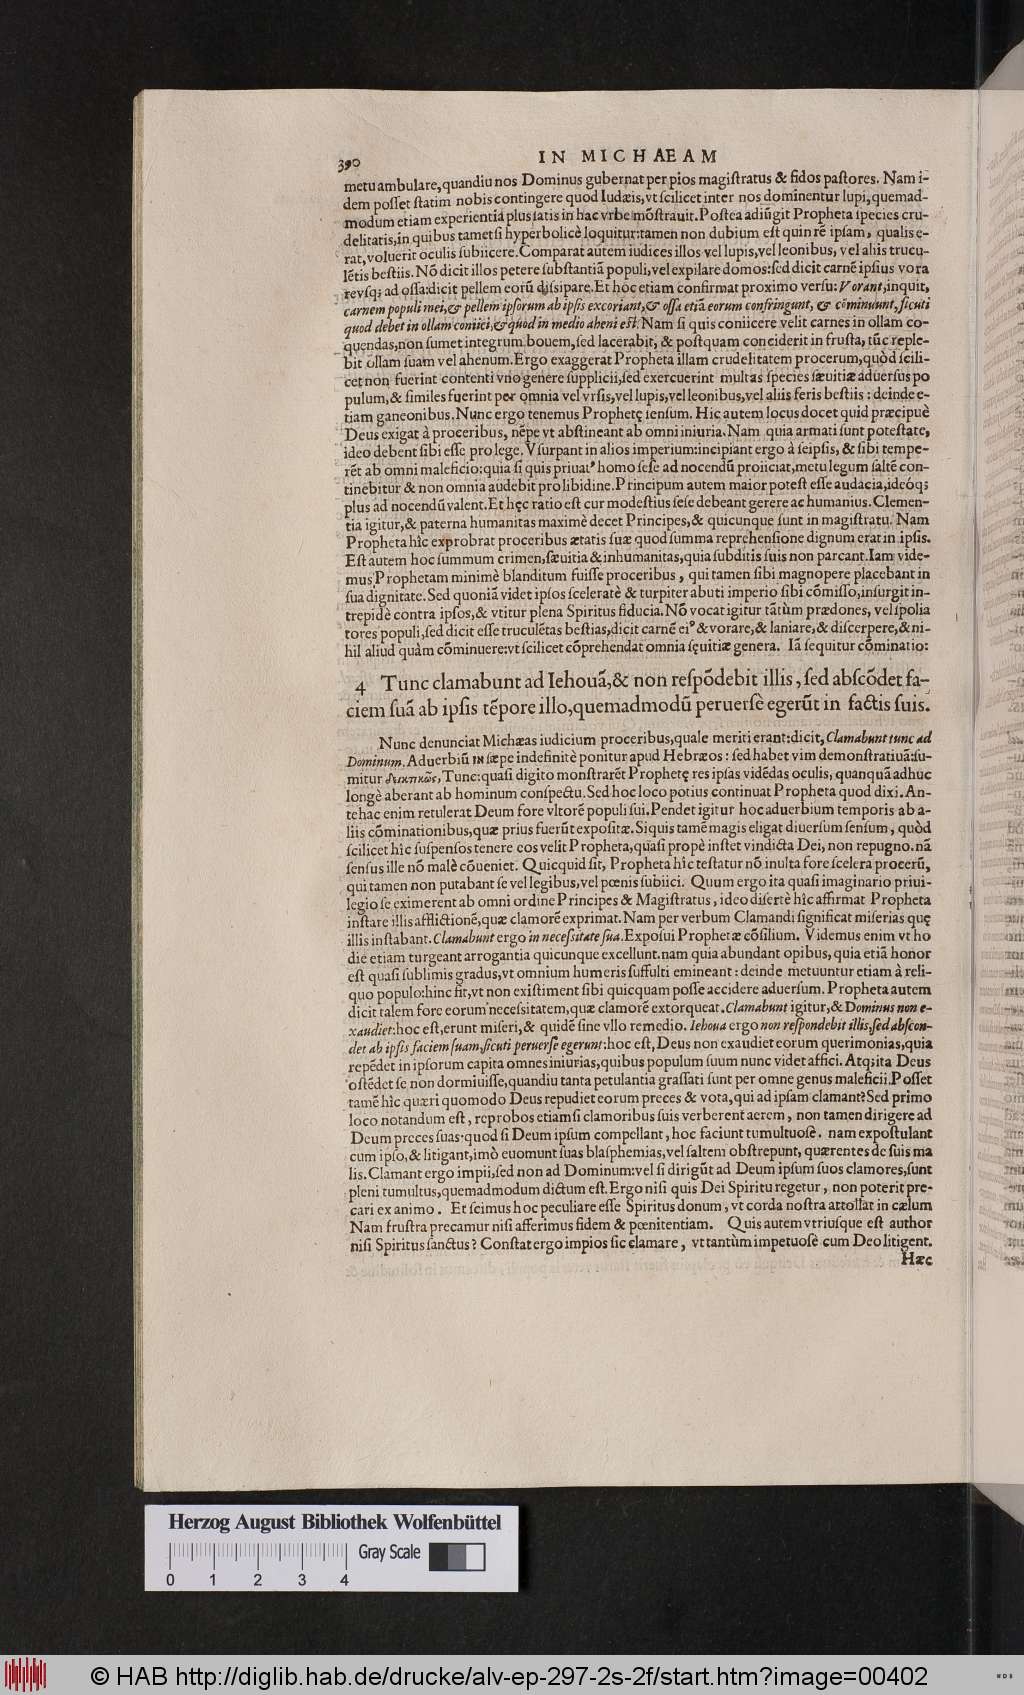 390
IN MICHÆAM
metu ambulare, quandiu nos Dominus gubernat per pios magiſtratus & fidos paſtores. Nam i-
dem poſſet ſtatim nobis contingere quod Iudæis, vt ſcilicet inter nos dominentur lupi, quemad-
modum etiam experientia plus ſatis in hac vrbe mōſtrauit. Poſtea adiūgit Propheta ſpecies cru-
delitatis, in quibus tametſi hyperbolicè loquitur: tamen non dubium eſt quin rē ipſam, qualis e-
rat, voluerit oculis ſubiicere. Comparat autem iudices illos vel lupis, vel leonibus, vel aliis trucu-
lētis beſtiis. Nō dicit illos petere ſubſtantiā populi, vel expilare domos: ſed dicit carnē ipſius vora
revſq; ad oſſa: dicit pellem eorū diſsipare. Et hoc etiam confirmat proximo verſu: Vorant, inquit,
carnem populi mei, & pellem ipſorum ab ipſis excoriant, & oſſa etiā eorum confringunt, & cōminuunt, ſicuti
quod debet in ollam coniici, & quod in medio aheni eſt. Nam ſi quis coniicere velit carnes in ollam co-
quendas, non ſumet integrum bouem, ſed lacerabit, & poſtquam conciderit in fruſta, tūc reple-
bit ollam ſuam vel ahenum. Ergo exaggerat Propheta illam crudelitatem procerum, quòd ſcili-
cet non fuerint contenti vno genere ſupplicii, ſed exercuerint multas ſpecies ſæuitiæ aduerſus po
pulum, & ſimiles fuerint per omnia vel vrſis, vel lupis, vel leonibus, vel aliis feris beſtiis: deinde e-
tiam ganeonibus. Nunc ergo tenemus Prophetę ſenſum. Hic autem locus docet quid præcipuè
Deus exigat à proceribus, nēpe vt abſtineant ab omni iniuria. Nam quia armati ſunt poteſtate,
ideo debent ſibi eſſe pro lege. Vſurpant in alios imperium: incipiant ergo à ſeipſis, & ſibi tempe-
rēt ab omni maleficio: quia ſi quis priuatꝰ homo ſeſe ad nocendū proiiciat, metu legum ſaltē con-
tinebitur & non omnia audebit pro libidine. Principum autem maior poteſt eſſe audacia, ideóq;
plus ad nocendū valent. Et hęc ratio eſt cur modeſtius ſeſe debeant gerere ac humanius. Clemen-
tia igitur, & paterna humanitas maximè decet Principes, & quicunque ſunt in magiſtratu. Nam
Propheta hîc exprobrat proceribus ætatis ſuæ quod ſumma reprehenſione dignum erat in ipſis.
Eſt autem hoc ſummum crimen, ſæuitia & inhumanitas, quia ſubditis ſuis non parcant. Iam vide-
mus Prophetam minimè blanditum fuiſſe proceribus, qui tamen ſibi magnopere placebant in
ſua dignitate. Sed quoniā videt ipſos ſceleratè & turpiter abuti imperio ſibi cōmiſſo, inſurgit in-
trepidè contra ipſos, & vtitur plena Spiritus fiducia. Nō vocat igitur tātùm prædones, vel ſpolia
tores populi, ſed dicit eſſe truculētas beſtias, dicit carnē eiꝰ & vorare, & laniare, & diſcerpere, & ni-
hil aliud quàm cōminuere: vt ſcilicet cōprehendat omnia ſęuitiæ genera. Iā ſequitur cōminatio:
4 Tunc clamabunt ad Iehouā, & non reſpōdebit illis, ſed abſcōdet fa-
ciem ſuā ab ipſis tēpore illo, quemadmodū peruerſè egerūt in factis ſuis.
Nunc denunciat Michæas iudicium proceribus, quale meriti erant: dicit, Clamabunt tunc ad
Dominum. Aduerbiū אז ſæpe indefinitè ponitur apud Hebræos: ſed habet vim demonſtratiuā: ſu-
mitur δεικτικῶς, Tunc: quaſi digito monſtrarēt Prophetę res ipſas vidēdas oculis, quanquā adhuc
longè aberant ab hominum conſpectu. Sed hoc loco potius continuat Propheta quod dixi. An-
tehac enim retulerat Deum fore vltorē populi ſui. Pendet igitur hoc aduerbium temporis ab a-
liis cōminationibus, quæ prius fuerūt expoſitæ. Siquis tamē magis eligat diuerſum ſenſum, quòd
ſcilicet hîc ſuſpenſos tenere eos velit Propheta, quaſi propè inſtet vindicta Dei, non repugno. nā
ſenſus ille nō malè cōueniet. Quicquid ſit, Propheta hîc teſtatur nō inulta fore ſcelera procerū,
qui tamen non putabant ſe vel legibus, vel pœnis ſubiici. Quum ergo ita quaſi imaginario priui-
legio ſe eximerent ab omni ordine Principes & Magiſtratus, ideo diſertè hîc affirmat Propheta
inſtare illis afflictionē, quæ clamorē exprimat. Nam per verbum Clamandi ſignificat miſerias quę
illis inſtabant. Clamabunt ergo in neceſsitate ſua. Expoſui Prophetæ cōſilium. Videmus enim vt ho
die etiam turgeant arrogantia quicunque excellunt. nam quia abundant opibus, quia etiā honor
eſt quaſi ſublimis gradus, vt omnium humeris ſuffulti emineant: deinde metuuntur etiam à reli-
quo populo: hinc fit, vt non exiſtiment ſibi quicquam poſſe accidere aduerſum. Propheta autem
dicit talem fore eorum neceſsitatem, quæ clamorē extorqueat. Clamabunt igitur, & Dominus non e-
xaudiet: hoc eſt, erunt miſeri, & quidē ſine vllo remedio. Iehoua ergo non reſpondebit illis, ſed abſcon-
det ab ipſis faciem ſuam, ſicuti peruerſe egerunt: hoc eſt, Deus non exaudiet eorum querimonias, quia
repēdet in ipſorum capita omnes iniurias, quibus populum ſuum nunc videt affici. Atq; ita Deus
oſtēdet ſe non dormiuiſſe, quandiu tanta petulantia graſſati ſunt per omne genus maleficii. Poſſet
tamē hîc quæri quomodo Deus repudiet eorum preces & vota, qui ad ipſam clamant? Sed primo
loco notandum eſt, reprobos etiamſi clamoribus ſuis verberent aerem, non tamen dirigere ad
Deum preces ſuas. quod ſi Deum ipſum compellant, hoc faciunt tumultuoſè. nam expoſtulant
cum ipſo, & litigant, imò euomunt ſuas blaſphemias, vel ſaltem obſtrepunt, quærentes de ſuis ma
lis. Clamant ergo impii, ſed non ad Dominum: vel ſi dirigūt ad Deum ipſum ſuos clamores, ſunt
pleni tumultus, quemadmodum dictum eſt. Ergo niſi quis Dei Spiritu regetur, non poterit pre-
cari ex animo. Et ſcimus hoc peculiare eſſe Spiritus donum, vt corda noſtra attollat in cælum
Nam fruſtra precamur niſi afferimus fidem & pœnitentiam. Quis autem vtriuſque eſt author
niſi Spiritus ſanctus? Conſtat ergo impios ſic clamare, vt tantùm impetuoſè cum Deo litigent.
Hæc
Herzog August Bibliothek Wolfenbüttel
Gray Scale
0 1 2 3 4
© HAB http://diglib.hab.de/drucke/alv-ep-297-2s-2f/start.htm?image=00402